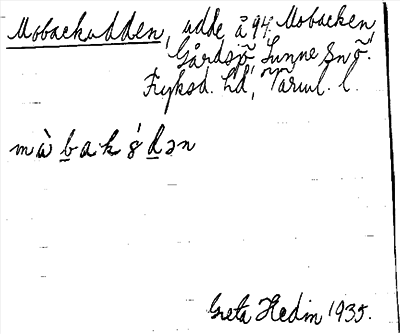 Mobackudden, udde å 94. Mobacken,
Gårdsjö Sunne sn ö.
Fryksd. hd, Värml. l.
mà b a k ȣ́ d ə n
Greta Hedin 1935.